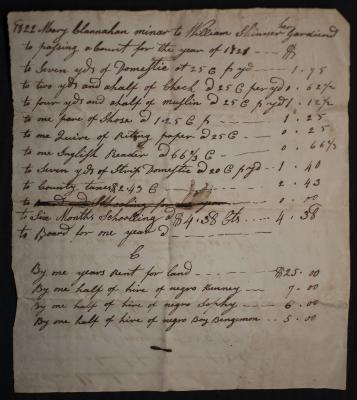 1822 Mary Clannahan minor to William Skinner her Gardiend
to passing a bount for the year of 1821 -- $
to Seven yds of Domestic at 25 C p yd -- 1.75
to two yds and ahalf of Check @ 25 C per yd 0.62½
to four yds and ahalf of muslin @ 25 C p yd 1.12½
to one pare of Shose @ 1.25 C p -- 1.25
to one Quire of Riting paper @ 25 C -- 0.25
to one Inglish Reader @ 66⅔ C -- 0.66⅔
to Seven yds of Strip Domestic @ 20 C p yd -- 1.40
to County taxes $2.43 C -- 2.43
to Schooling for year 0.00
to Six Months Schoolling @ $4.38 Cts -- 4.38
to Board for one year @
C
By one years Rent for land -- $25.00
By one half of hire of negro Kinney -- 7.00
By one half of hire of negro Sophy -- 6.00
By one half of hire of negro Boy Bengemon -- 5.00